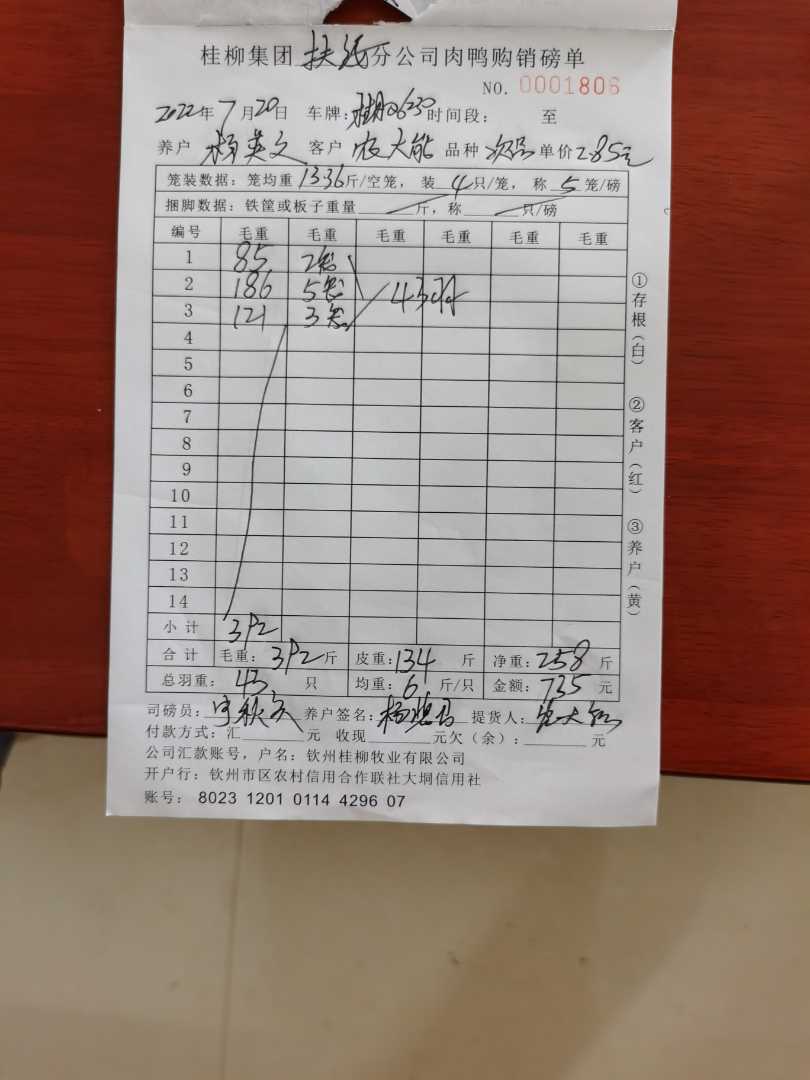 桂柳集团扶绥分公司肉鸭购销磅单
NO. 0001806
2022年7月20日 车牌:桂 06230 时间段: 至
养户 杨英文 客户 农大能 品种 次品 单价 2.85元
笼装数据:笼均重 13.36斤/空笼,装 4只/笼,称 5笼/磅
捆脚数据:铁筐或板子重量 斤,称 只/磅
编号 毛重 毛重 毛重 毛重 毛重 毛重
1 85 2笼
2 186 5笼 43羽
3 121 3笼
4
5
6
7
8
9
10
11
12
13
14
小计 392
合计 毛重: 392斤 皮重:134 斤 净重:258 斤
总羽重: 43 只 均重:6 斤/只 金额:735 元
司磅员: 养户签名: 提货人:
付款方式:汇 元 收现 元欠(余): 元
公司汇款账号,户名:钦州桂柳牧业有限公司
开户行:钦州市区农村信用合作联社大垌信用社
账号: 8023 1201 0114 4296 07
①存根(白)
②客户(红)
③养户(黄)